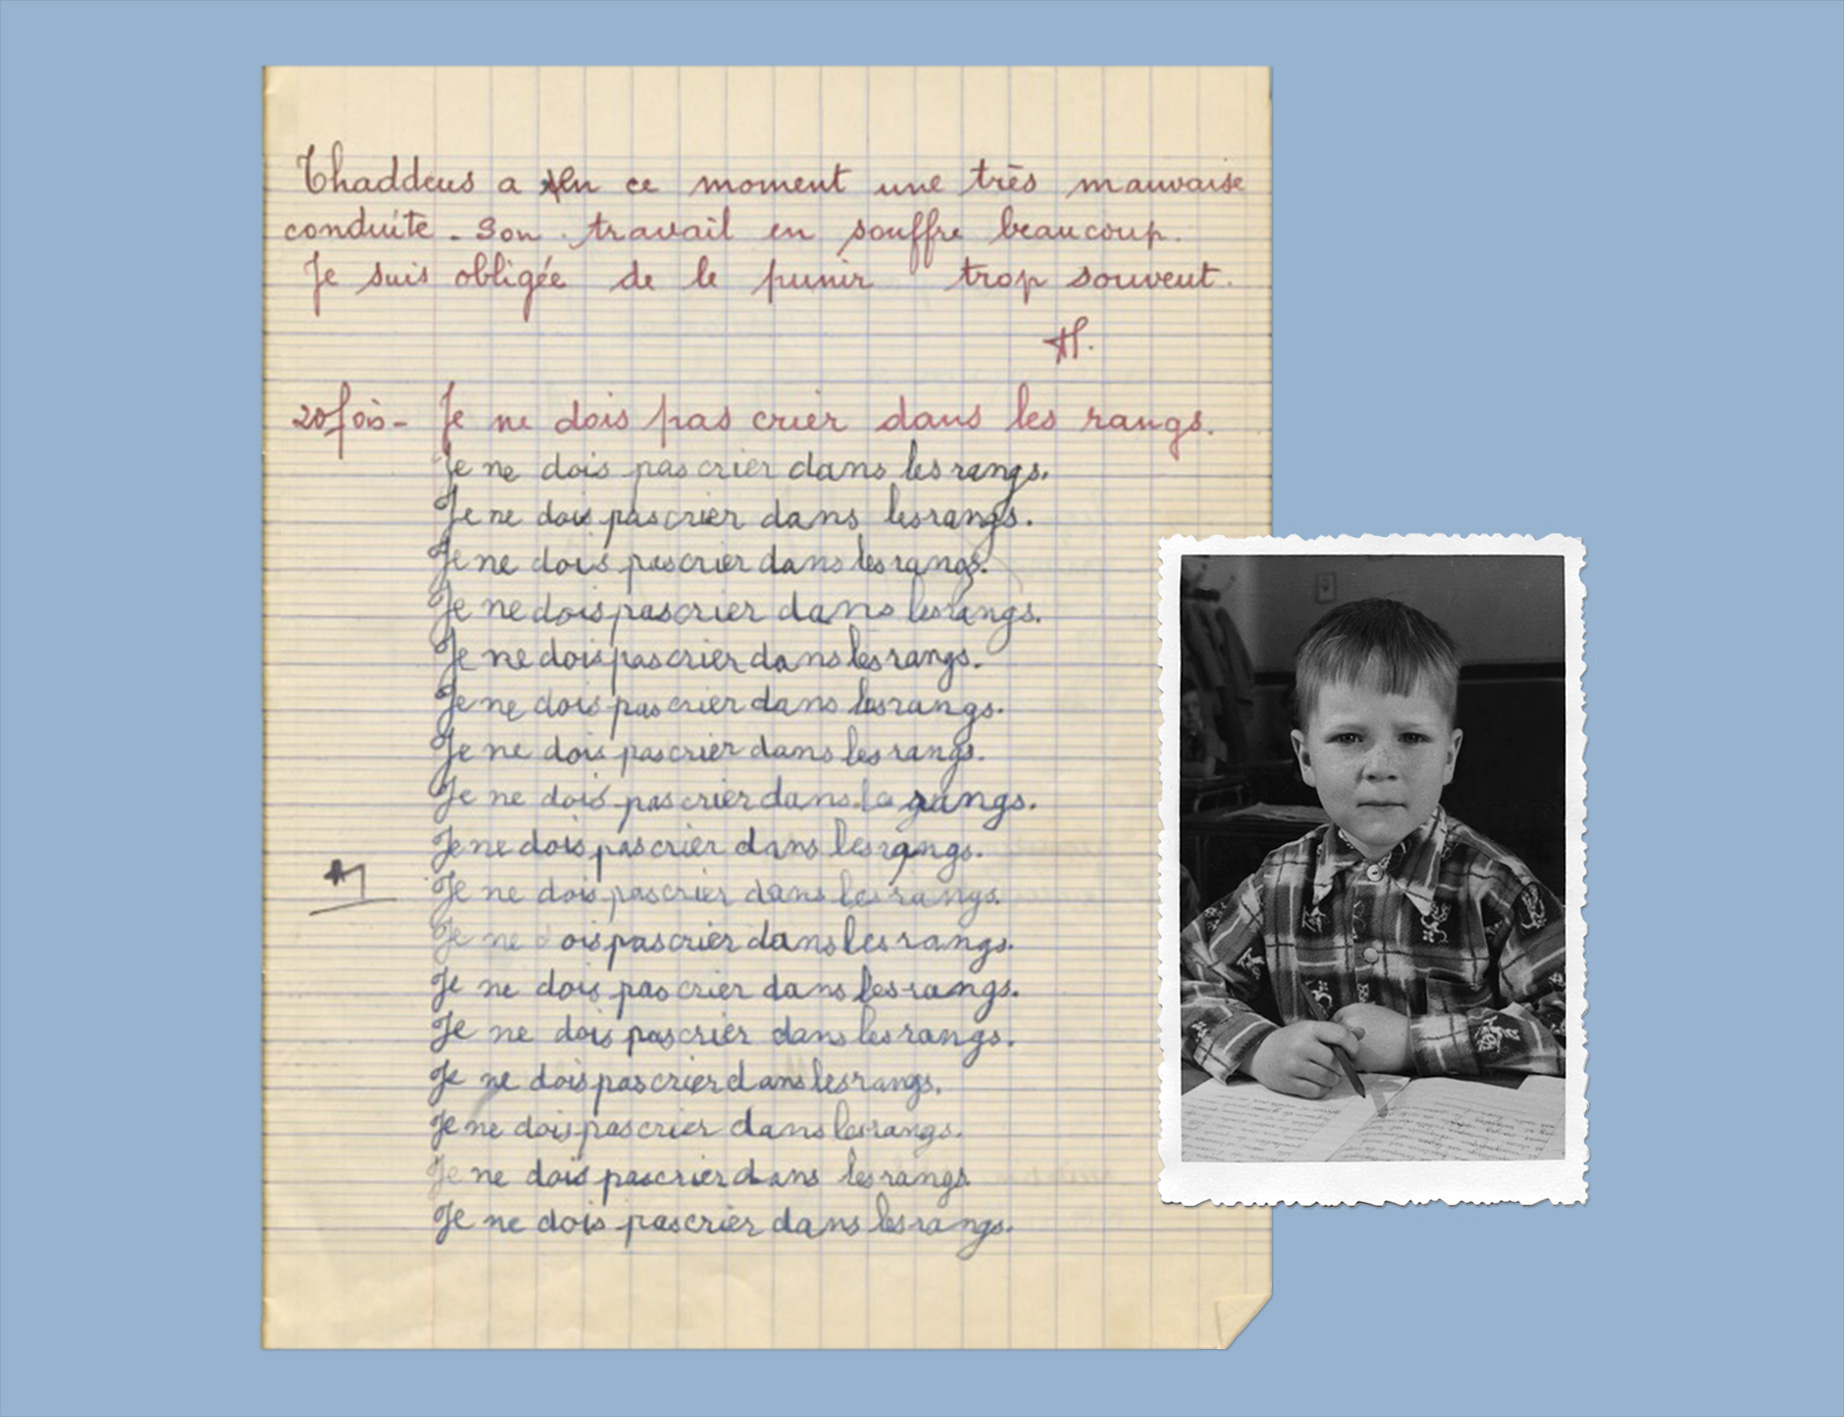 Thaddeus a en ce moment une très mauvaise
conduite. Son travail en souffre beaucoup.
Je suis obligée de le punir trop souvent.
H.
20 fois - Je ne dois pas crier dans les rangs.
Je ne dois pas crier dans les rangs.
Je ne dois pas crier dans les rangs.
Je ne dois pas crier dans les rangs.
Je ne dois pas crier dans les rangs.
Je ne dois pas crier dans les rangs.
Je ne dois pas crier dans les rangs.
Je ne dois pas crier dans les rangs.
Je ne dois pas crier dans rangs.
Je ne dois pas crier dans les rangs.
Je ne dois pas crier dans les rangs.
Je ne dois pas crier dans les rangs.
Je ne dois pas crier dans les rangs.
Je ne dois pas crier dans les rangs.
Je ne dois pas crier dans les rangs.
Je ne dois pas crier dans les rangs.
Je ne dois pas crier dans les rangs
Je ne dois pas crier dans les rangs.